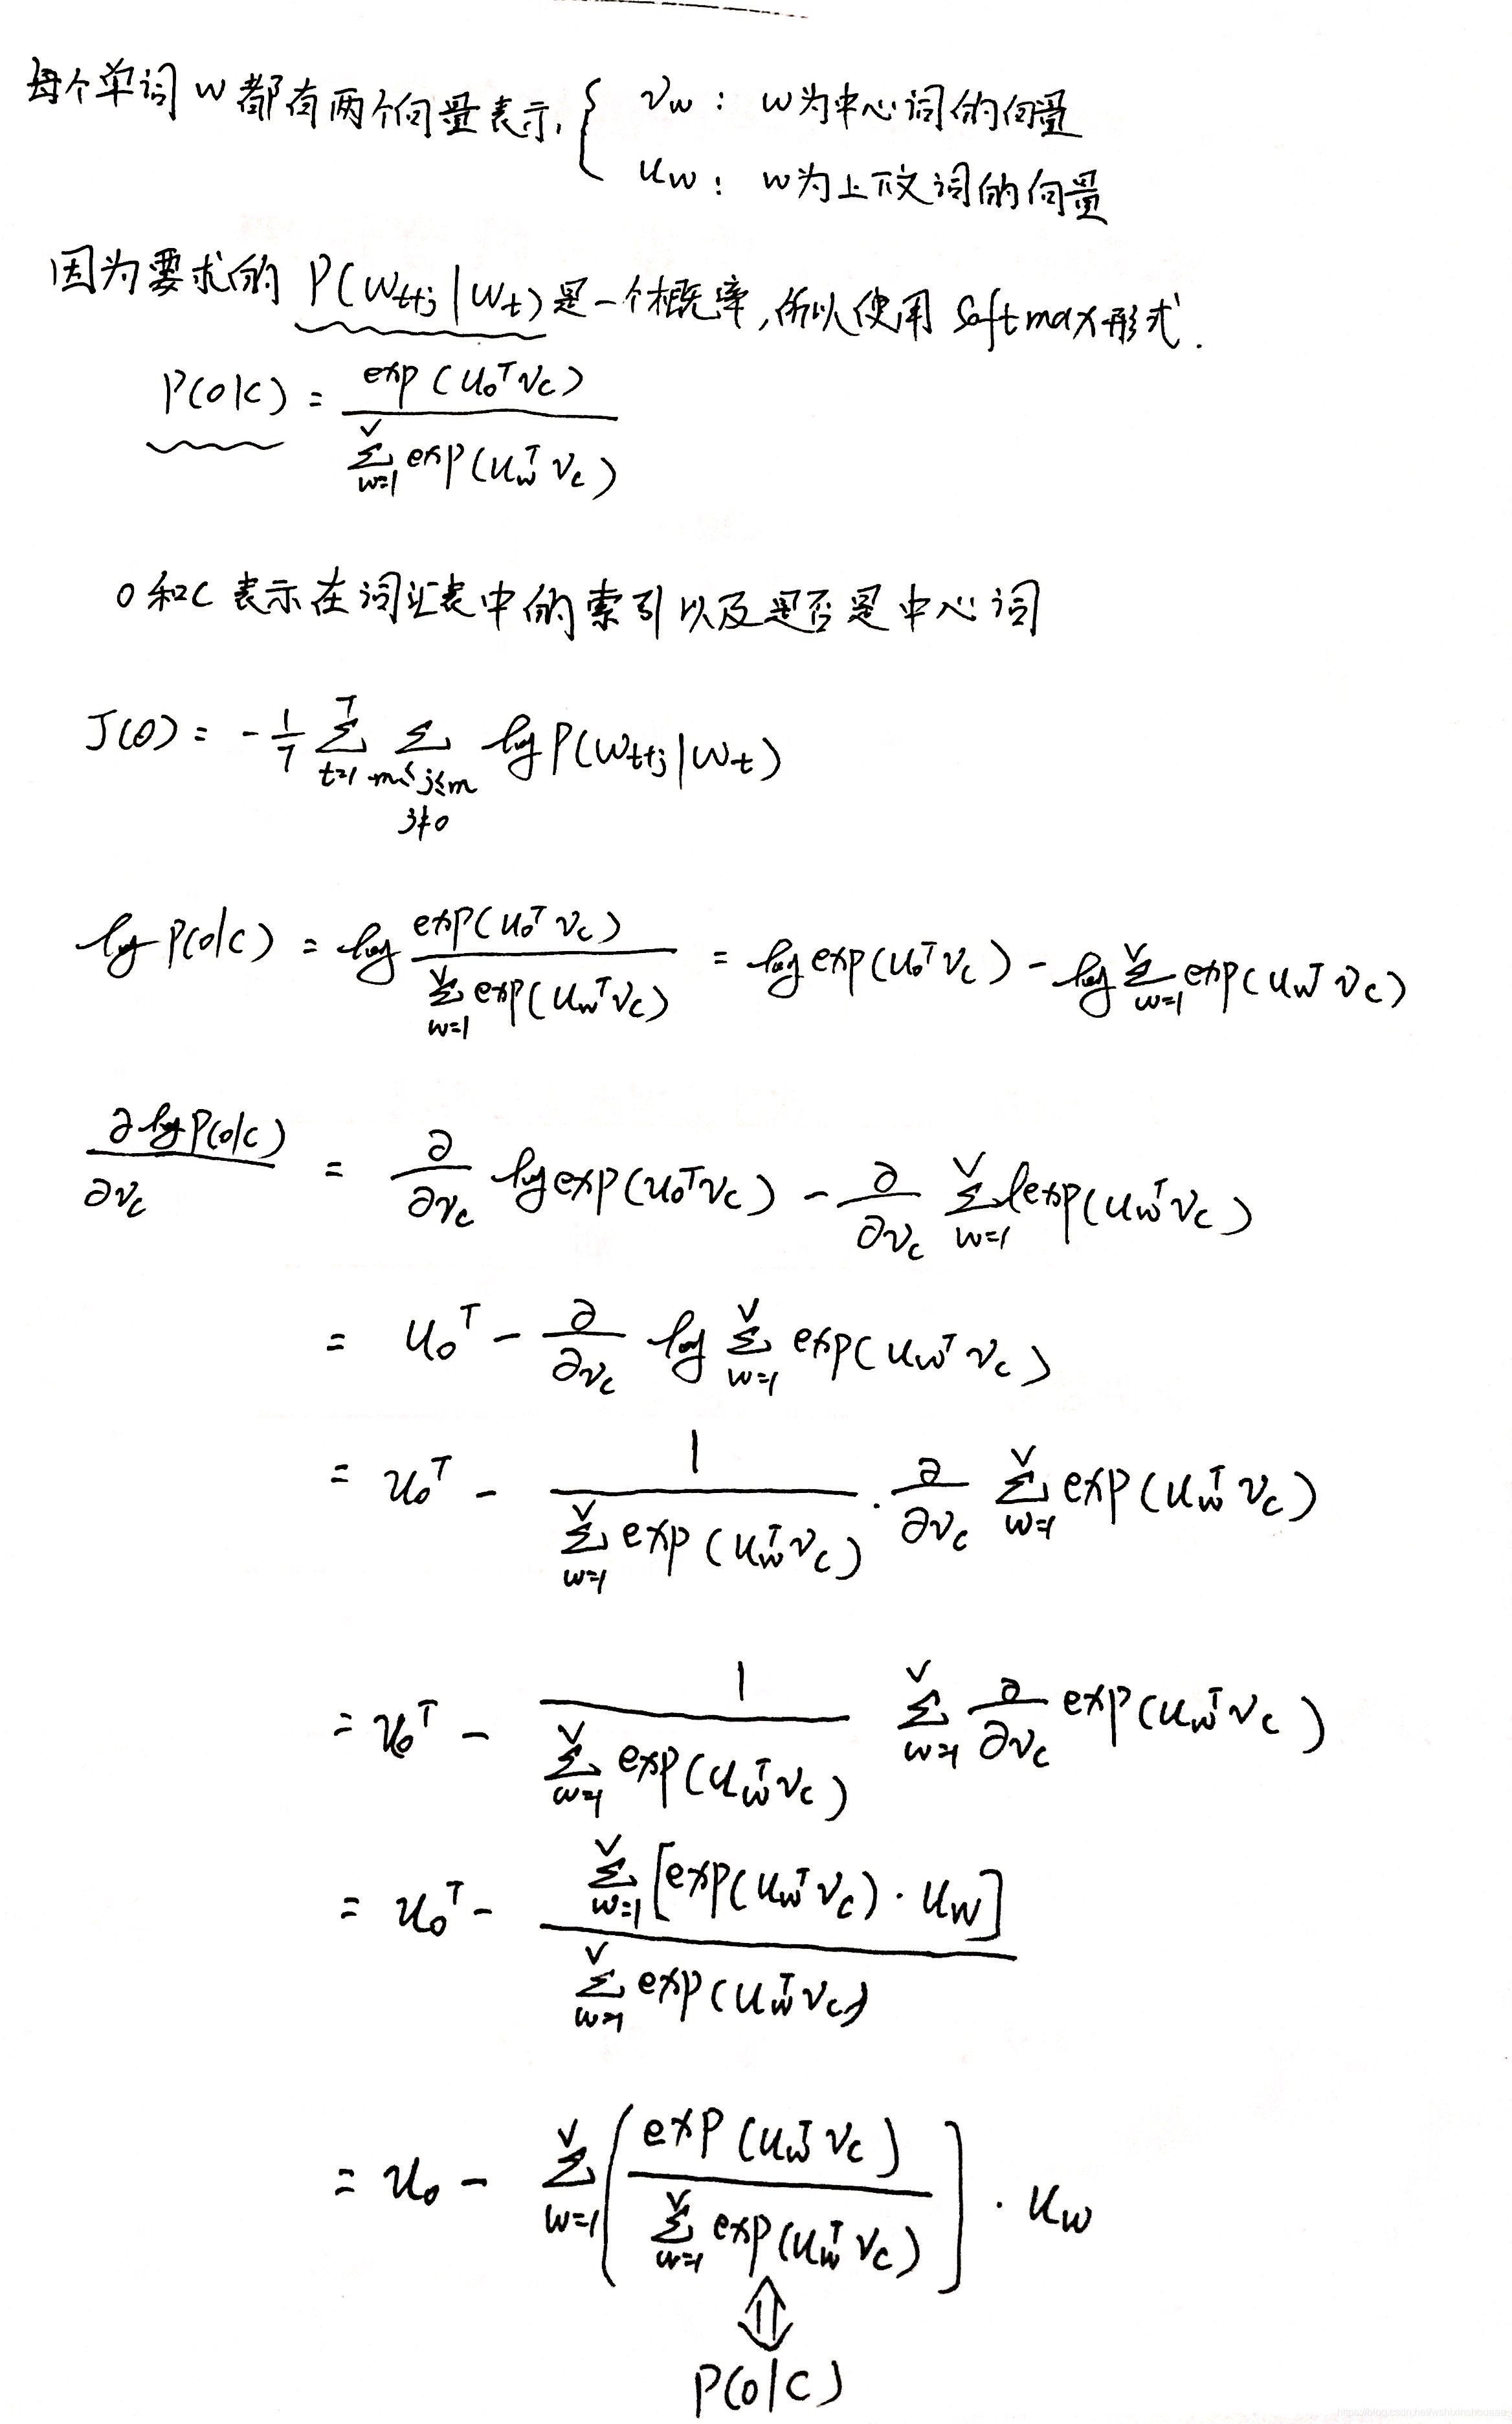 每个单词 w 都有两个向量表示, { v_w : w为中心词的向量
u_w : w为上下文词的向量
因为要求的 P(w_{t+j} | w_t) 是一个概率,所以使用 softmax形式.
P(o|c) = exp(u_o^T v_c) / Σ_{w=1}^{V} exp(u_w^T v_c)
o和c 表示在词汇表中的索引以及是否是中心词
J(θ) = - 1/T Σ_{t=1}^{T} Σ_{-m≤j≤m, j≠0} log P(w_{t+j} | w_t)
log P(o|c) = log exp(u_o^T v_c) / Σ_{w=1}^{V} exp(u_w^T v_c) = log exp(u_o^T v_c) - log Σ_{w=1}^{V} exp(u_w^T v_c)
∂ log P(o|c) / ∂v_c = ∂/∂v_c log exp(u_o^T v_c) - ∂/∂v_c Σ_{w=1}^{V} exp(u_w^T v_c)
= u_o^T - ∂/∂v_c log Σ_{w=1}^{V} exp(u_w^T v_c)
= u_o^T - 1 / Σ_{w=1}^{V} exp(u_w^T v_c) · ∂/∂v_c Σ_{w=1}^{V} exp(u_w^T v_c)
= u_o^T - 1 / Σ_{w=1}^{V} exp(u_w^T v_c) Σ_{w=1}^{V} ∂/∂v_c exp(u_w^T v_c)
= u_o^T - Σ_{w=1}^{V} [exp(u_w^T v_c) · u_w] / Σ_{w=1}^{V} exp(u_w^T v_c)
= u_o - Σ_{w=1}^{V} ( exp(u_w^T v_c) / Σ_{w=1}^{V} exp(u_w^T v_c) ] · u_w
⇕
P(o|c)